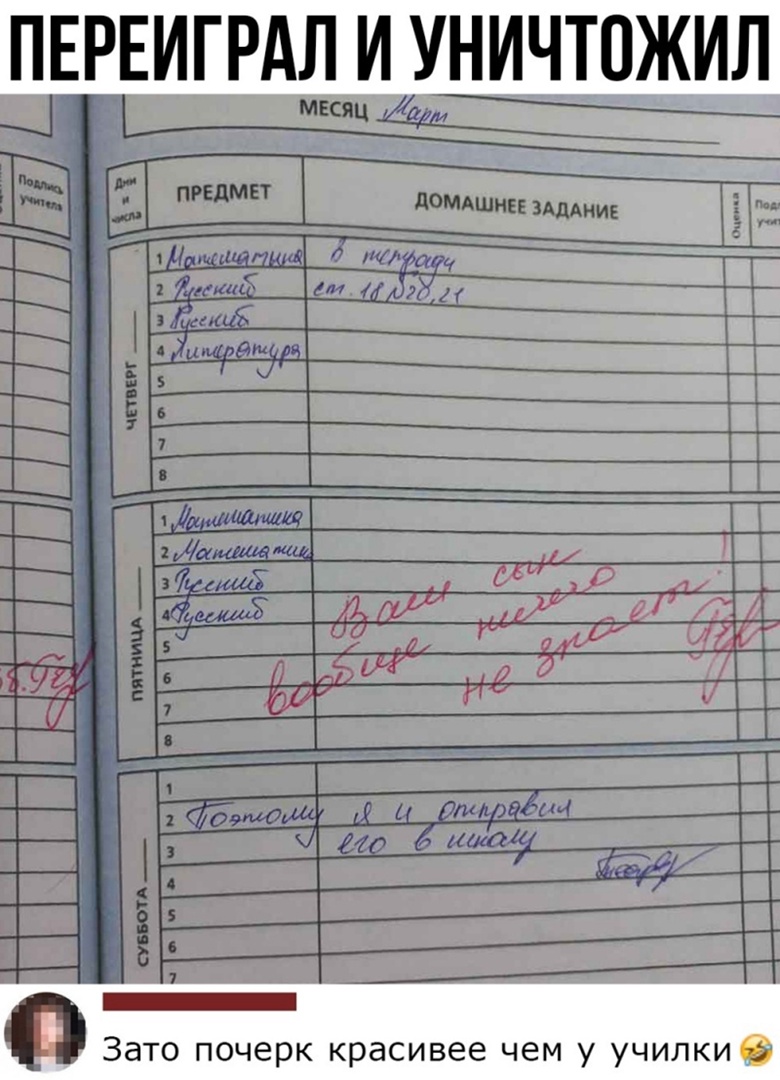 ПЕРЕИГРАЛ И УНИЧТОЖИЛ
МЕСЯЦ Март
Подпись учителя
Дни и числа
ПРЕДМЕТ
ДОМАШНЕЕ ЗАДАНИЕ
Оценка
ЧЕТВЕРГ
1 Математика в тетради
2 Русский ст. 18 №20,21
3 Русский
4 Литература
5
6
7
8
ПЯТНИЦА
1 Математика
2 Математик
3 Русский
4 Русский
5
6
7
8
Ваш сын
вообще ничего
не знает!
СУББОТА
1
2 Поэтому я и отправил
3 его в школу
4
5
6
7
Зато почерк красивее чем у училки🤣